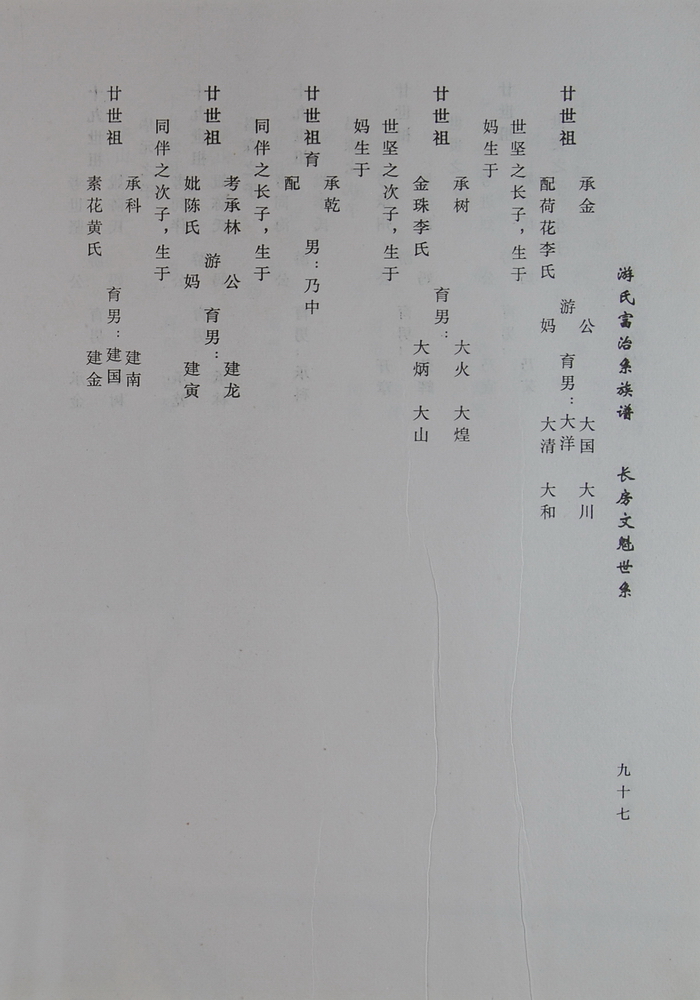 游氏富治系族谱 长房文魁世系
九十七
承金 公 大国 大川
廿世祖 游 育男：大洋
配荷花李氏 妈 大清 大和
世坚之长子，生于
妈生于
承树 大火 大煌
廿世祖 育男：
金珠李氏 大炳 大山
世坚之次子，生于
妈生于
承乾
廿世祖育 男：乃中
配
同伴之长子，生于
考承林 公 建龙
廿世祖 游 育男：
妣陈氏 妈 建寅
同伴之次子，生于
承科 建南
廿世祖 育男：建国
素花黄氏 建金